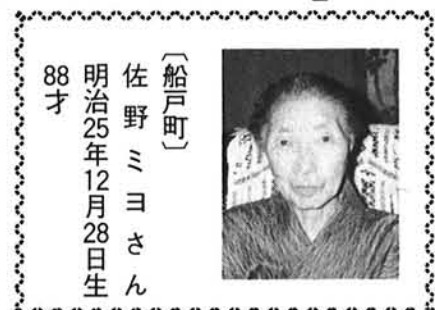 〔船戸町〕
佐野ミヨさん
明治25年12月28日生
88才